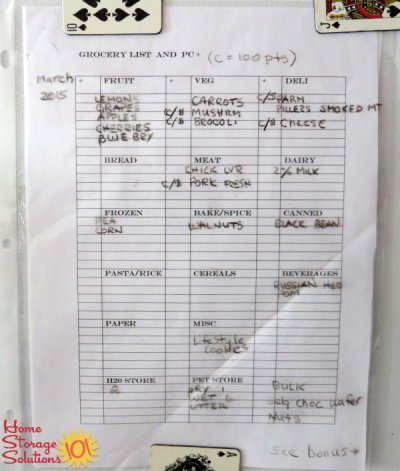 10
J
GROCERY LIST AND PC+ (C = 100 pts)
March 2015
+ FRUIT + VEG + DELI
LEMONS CARROTS C/$ PARM
GRAPES C/$ MUSHRM PILLERS SMOKED MT
APPLES C/$ BROCOLI C/$ CHEESE
CHERRIES
BLUE BRY
BREAD MEAT DAIRY
CHICK LVR 2% MILK
C/$ PORK FRESH
FROZEN BAKE/SPICE CANNED
PEA WALNUTS BLACK BEAN
CORN
PASTA/RICE CEREALS BEVERAGES
RUSSIAN H20
POM
PAPER MISC
Lifestyle
Cookies
H20 STORE PET STORE BULK
2 DRY 1 choc wafer
WET 6 Nuts
LITTER
see bonus →
A
Home Storage Solutions 101